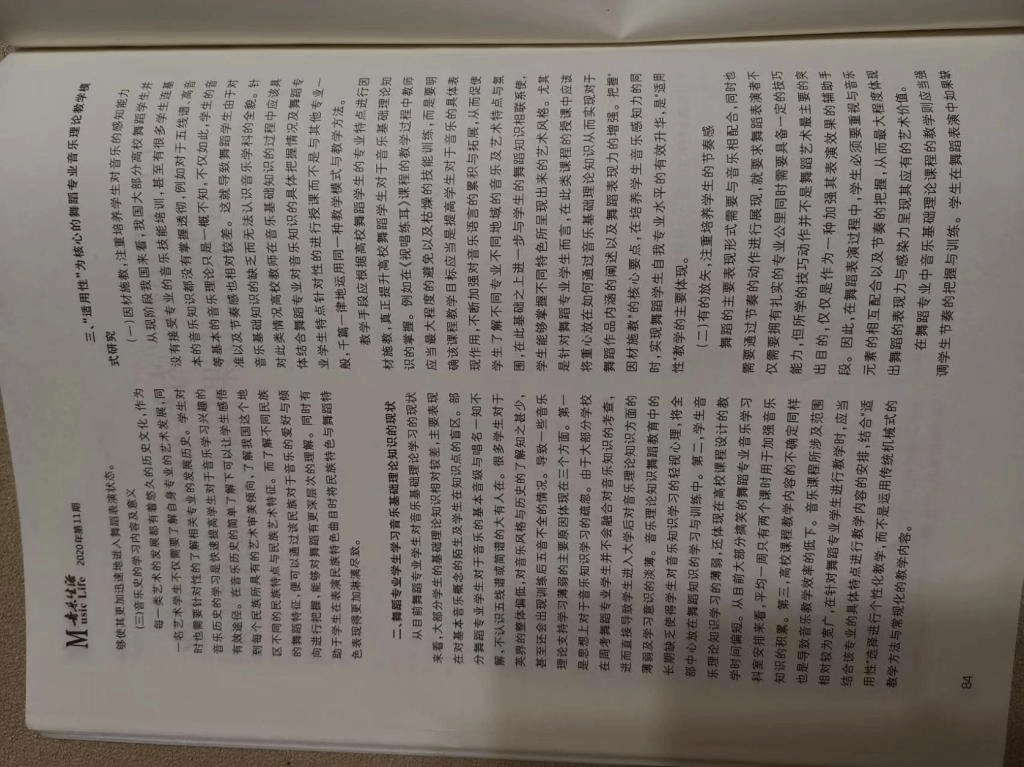 音乐生活
Music Life 2020年第11期
够使其更加迅速地进入舞蹈表演状态。
(三)音乐史的学习内容及意义
每一类艺术的发展都有着悠久的历史文化,作为
一名艺术学生不仅需要了解自身专业的艺术发展,同
时也需要针对性的了解相关专业的发展历史。学生对
音乐历史的学习是快速提高学生对于音乐学习兴趣的
有效途径。在音乐历史的简单了解下可以让学生感悟
到每个民族所具有的艺术审美倾向,了解我国这个地
区不同的民族特点与民族艺术特征。而了解不同民族
的舞蹈特征,便可以通过该民族对于音乐的爱好与倾
向进行把握,能够对舞蹈有更深层次的理解。同时有
助于学生在表演民族特色曲目时将民族特色与舞蹈特
色表现得更加淋漓尽致。
二、舞蹈专业学生学习音乐基础理论知识的现状
从目前舞蹈专业学生对音乐基础理论学习的现状
来看,大部分学生的基础理论知识相对较差,主要表现
在对基本音乐概念的陌生及学生在知识点的盲区。部
分舞蹈专业学生对于音乐的基本音级与唱名一知不
解,不认识五线谱或简谱的大有人在。很多学生对于
英界的整体偏低,对音乐风格与历史的了解知之甚少,
甚至还会出现训练后五音不全的情况。导致一些音乐
理论支持学习薄弱的主要原因体现在三个方面。第一
是思想上对于音乐知识学习的疏忽。由于大部分学校
在周考舞蹈专业学生并不会融合对音乐知识的考查,
进而直接导致学生进入大学后对音乐理论知识方面的
薄弱及学习意识的淡薄。音乐理论知识舞蹈教育中的
长期缺乏使得学生对音乐知识学习的轻视心理,将全
部中心放在舞蹈知识的学习与训练中。第二,学生音
乐理论知识学习的薄弱,还体现在高校课程设计的教
学时间偏短。从目前大部分搞笑的舞蹈专业音乐学习
科室安排来看,平均一周只有两个课时用于加强音乐
知识的积累。第三,高校课程教学内容的不确定同样
也是导致音乐教学效率的低下。音乐课程所涉及范围
相对较为宽广,在针对舞蹈专业学生进行教学时,应当
结合该专业的具体特点进行教学内容的安排,结合“适
用性”选择进行个性化教学,而不是运用传统机械式的
教学方法与常规化的教学内容。
三、“适用性”为核心的舞蹈专业音乐理论教学模
式研究
(一)因材施教,注重培养学生对音乐的感知能力
从现阶段我国来看,我国大部分高校舞蹈学生并
没有接受专业的音乐技能培训,甚至有很多学生连基
本的音乐知识都没有掌握透彻,例如对于五线谱、高音
等基本的音乐理论只是一概不知,不仅如此,学生的音
准以及节奏感也相对较差。这就导致舞蹈学生由于对
音乐基础知识的缺乏而无法认识音乐学科的全貌。针
对此类情况高校教师在音乐基础知识的过程中应该具
体结合舞蹈专业对音乐知识的具体把握情况及舞蹈专
业学生特点针对性的进行授课而不是与其他专业一
般,千篇一律地运用同一种教学模式与教学方法。
教学手段应根据高校舞蹈学生的专业特点进行因
材施教,真正提升高校舞蹈学生对于音乐基础理论知
识的掌握。例如在《视唱练耳》课程的教学过程中教师
应当最大程度的避免以及枯燥的技能训练,而是要明
确该课程教学目标应当是提高学生对于音乐的具体表
现作用,不断加强对音乐语言的累积与拓展,从而促使
学生了解不同专业不同地域的音乐及艺术特点与氛
围,在此基础之上进一步与学生的舞蹈知识相联系使,
学生能够掌握不同特色所呈现出来的艺术风格。尤其
是针对舞蹈专业学生而言,在此类课程的授课中应该
将重心放在如何通过音乐基础理论知识从而实现对于
舞蹈作品内涵的阐述以及舞蹈表现力的增强。把握“
因材施教”的核心要点,在培养学生音乐感知力的同
时,实现舞蹈学生自我专业水平的有效升华,是“适用
性”教学的主要体现。
(二)有的放矢,注重培养学生的节奏感
舞蹈的主要表现形式需要与音乐相配合,同时也
需要通过节奏的动作进行展现,就要求舞蹈表演者不
仅需要拥有扎实的专业公里同时需要具备一定的技巧
能力,但所学的技巧动作并不是舞蹈艺术最主要的突
出目的,仅仅是作为一种加强其表演效果的辅助手
段。因此,在舞蹈表演过程中,学生必须要重视与音乐
元素的相互配合以及节奏的把握,从而最大程度体现
出舞蹈的表现力与感染力呈现其应有的艺术价值。
在舞蹈专业中音乐基础理论课程的教学则应当强
调学生节奏的把握与训练。学生在舞蹈表演中如果缺
84